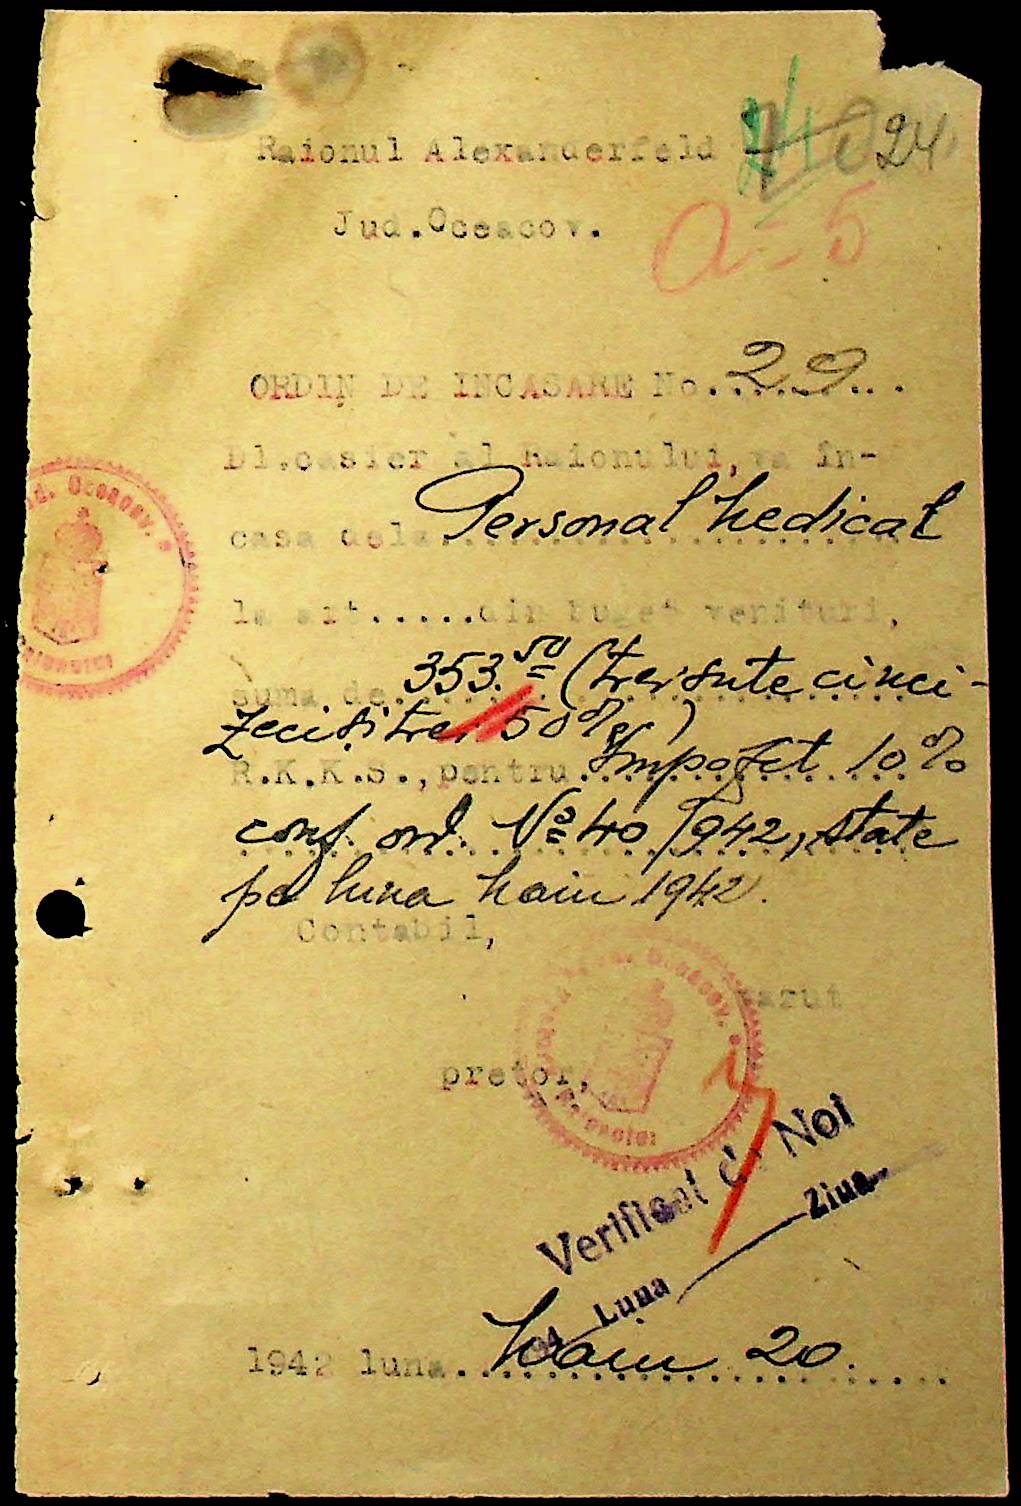 24
Raionul Alexanderfeld
Jud.Oceacov.
a-5
ORDIN DE INCASARE No. 29
Dl.casier al Raionului, va în-
casa dela Personal Medical
la art.....din buget venituri,
suma de 353.50 (treisute cinci-
zecisitrei 50%)
R.K.K.S.,pentru Impozit 10%
conf. ord. No 40/942, state
pe luna Maiu 1942.
Contabil,
pretor,
Verificat de Noi
Luna Ziua
1942 luna Maiu 20.